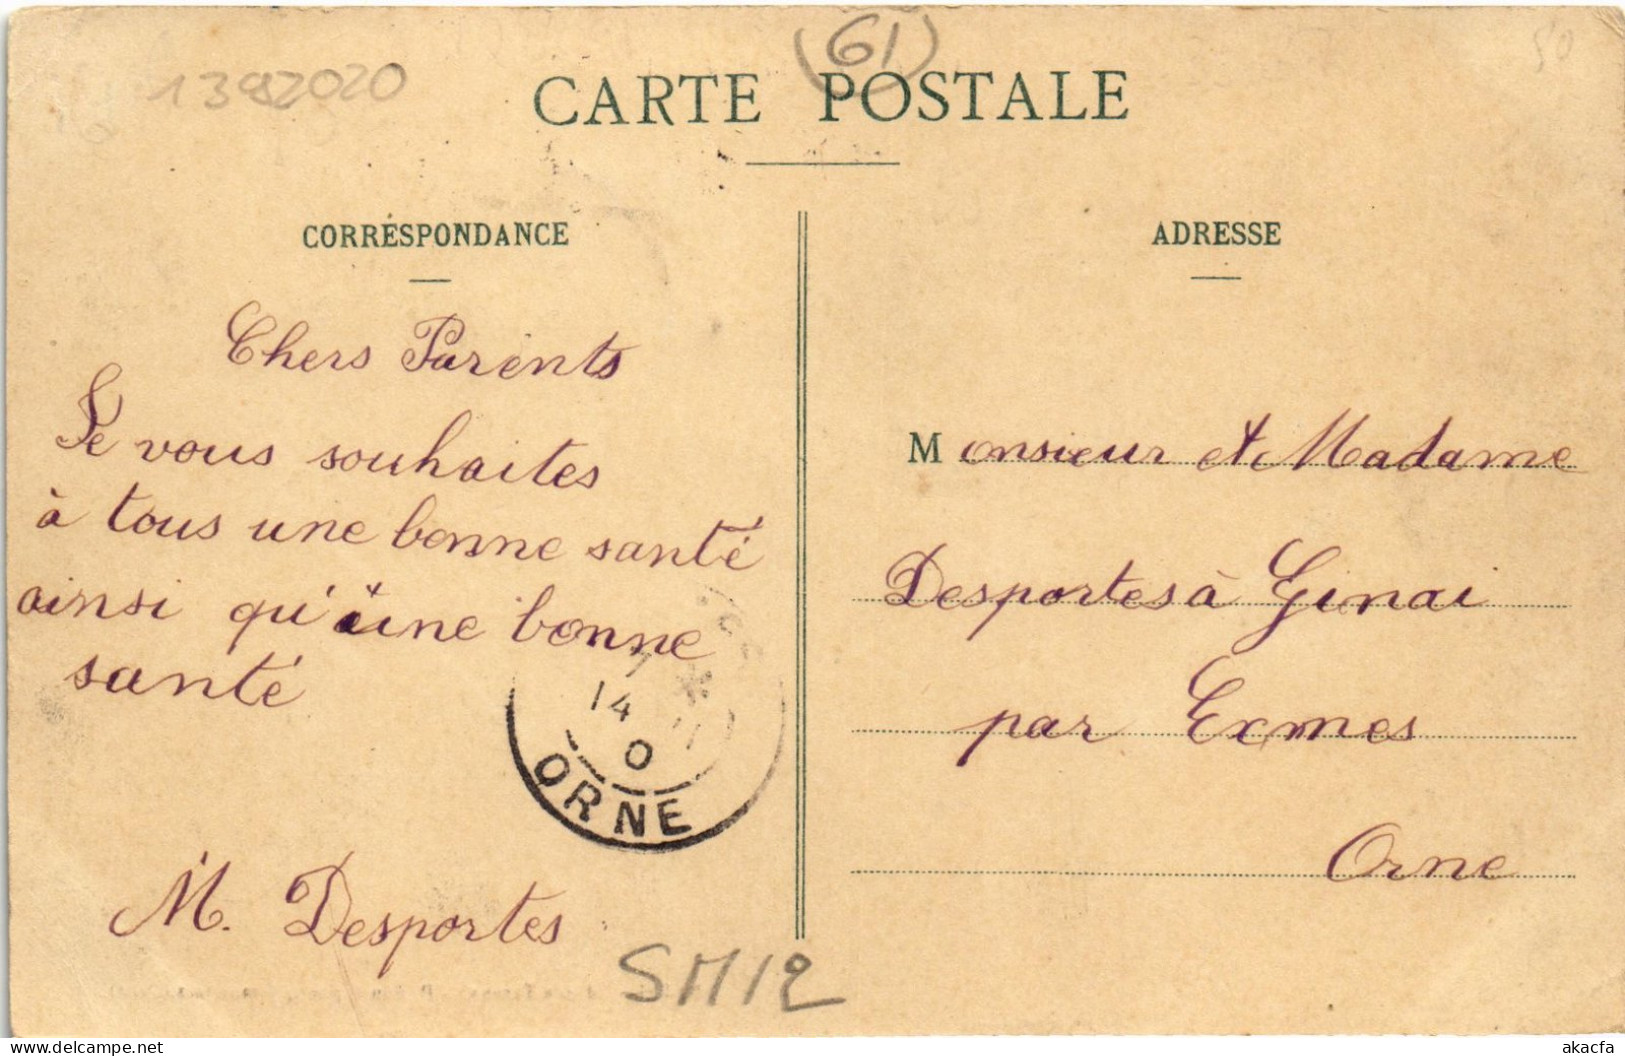 (61)
50
1392020
CARTE POSTALE
CORRÉSPONDANCE
ADRESSE
Chers Parents
Je vous souhaites
à tous une bonne santé
ainsi qu'une bonne
santé
M. Desportes
14
0
ORNE
Monsieur et Madame
Desportes à Ginai
par Exmes
Orne
SM12
akacfa